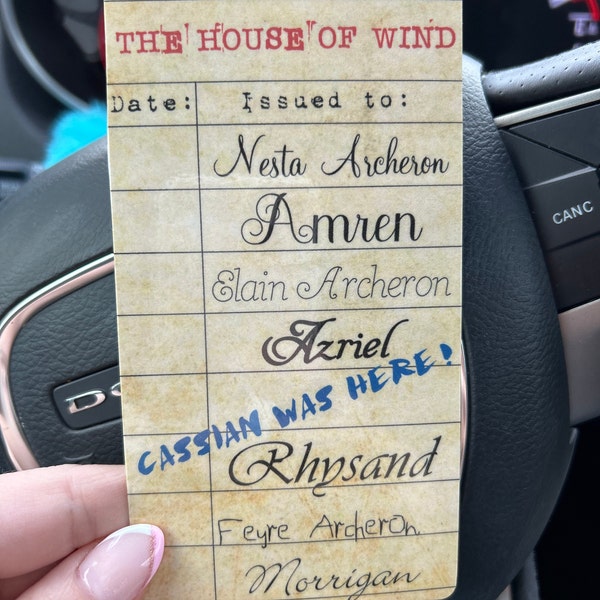 THE HOUSE OF WIND
Date: Issued to:
Nesta Archeron
Amren
Elain Archeron
Azriel
CASSIAN WAS HERE!
Rhysand
Feyre Archeron
Morrigan
CANC
DO